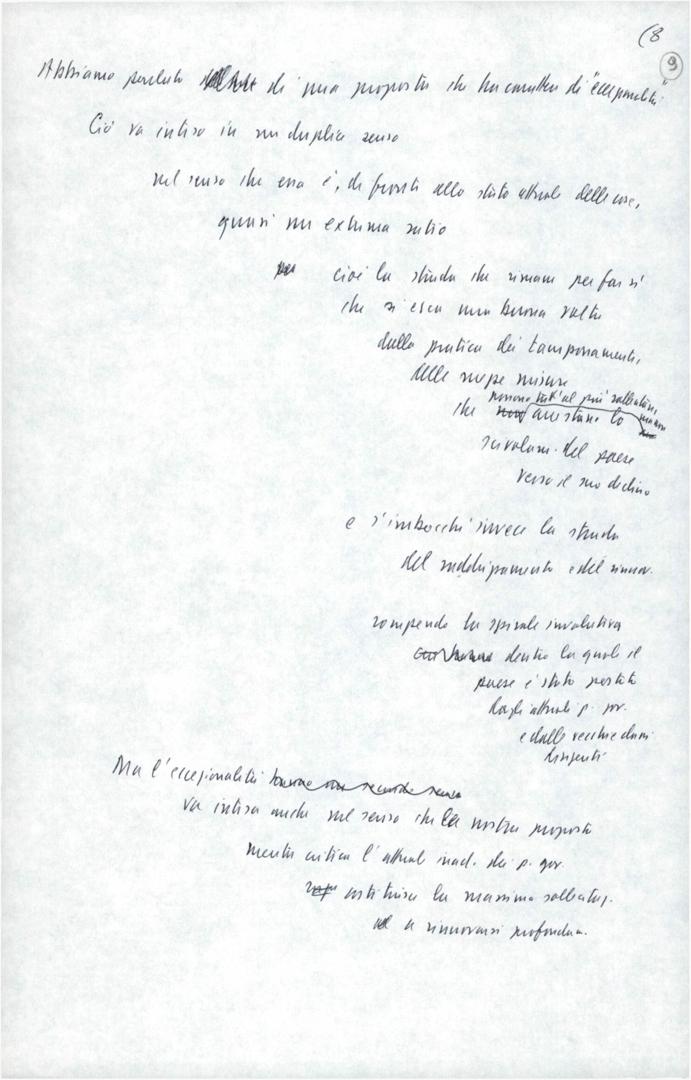 (8
9
Abbiamo parlato di una proposta che ha carattere di "eccezionalità"
Ciò va inteso in un duplice senso
nel senso che essa è, di fronte allo stato attuale delle cose,
quasi un extrema ratio
cioè la strada che rimane per far sì
che si esca una buona volta
dalla pratica dei tamponamenti,
delle mezze misure
possono tutt'al più rallentare,
che arrestano lo
scivolam. del paese
verso il suo declino
e s'imbocchi invece la strada
del raddrizzamento e del rinnov.
rompendo la spirale involutiva
dentro la quale il
paese è stato portato
dagli attuali p. gov.
e dalle vecchie classi
dirigenti
Ma l'eccezionalità
va intesa anche nel senso che la nostra proposta
mentre critica l'attuale inad. dei p. gov.
costituisce la massima sollecitaz.
a rinnovarsi profondam.